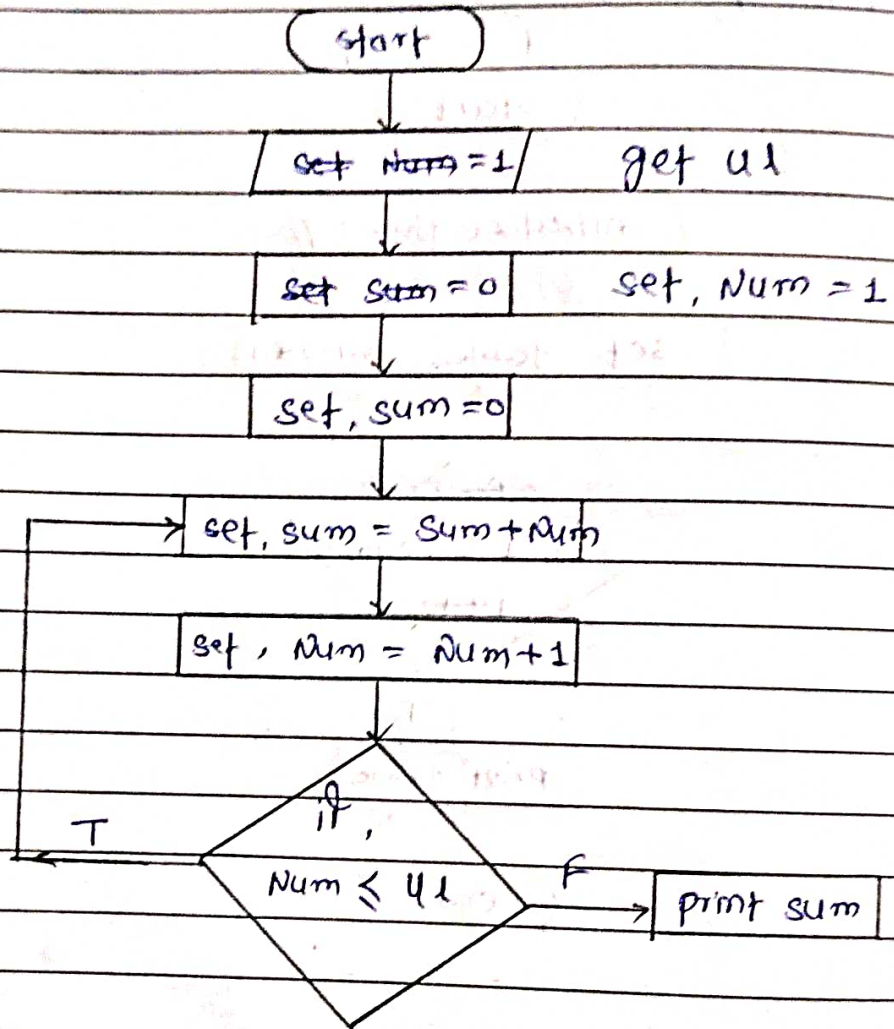 start
set Num = 1 get ul
set sum = 0 set, Num = 1
set, sum = 0
set, sum = Sum + Num
set, Num = Num + 1
if,
T
Num ≤ ul
F
print sum